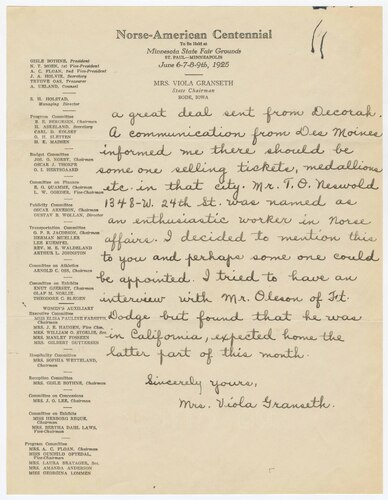 Norse-American Centennial
To Be Held at
Minnesota State Fair Grounds
ST. PAUL—MINNEAPOLIS
June 6-7-8-9th, 1925
MRS. VIOLA GRANSETH
State Chairman
RODE, IOWA
GISLE BOTHNE, President
N. T. MOEN, 1st Vice-President
A. C. FLOAN, 2nd Vice-President
J. A. HOLVIK, Secretary
TRYGVE OAS, Treasurer
A. UELAND, Counsel
S. H. HOLSTAD,
Managing Director
Program Committee
H. ASKELAND, Secretary
CARL D. KOLSET
O. H. SLETTEN
H. E. MADSEN
Budget Committee
JOS. G. NORBY, Chairman
OSCAR J. THORPE
O. I. HERTSGAARD
Committee on Finance
E. G. QUAMME, Chairman
Publicity Committee
OSCAR ARNESON, Chairman
GUSTAV B. WOLLAN, Director
Transportation Committee
O. P. B. JACOBSON, Chairman
HERMAN MUELLER
LEE KUEMPEL
REV. M. E. WALDELAND
ARTHUR L. JOHNSTON
Committee on Athletics
ARNOLD C. OSS, Chairman
Committee on Exhibits
KNUT GJERSET, Chairman
OLAF M. NORLIE
THEODORE C. BLEGEN
WOMEN'S AUXILIARY
Executive Committee
MISS ELISA PAULINE FARSETH, Chairman
MRS. WILLIAM O. STORLIE, Sec.
MRS. MANLEY FOSSEEN
MRS. GILBERT GUTTERSEN
Hospitality Committee
MRS. SOPHIA WETTELAND,
Chairman
Reception Committee
MRS. GISLE BOTHNE, Chairman
Committee on Concessions
MRS. J. O. LEE, Chairman
Committee on Exhibits
MISS HERBORG REQUE,
Chairman
MRS. BERTHA DAHL LAWS,
Vice-Chairman
Program Committee
MRS. A. C. FLOAN, Chairman
MISS GUNHILD OFTEDAL,
Vice-Chairman
MRS. LAURA BRATAGER, Sec.
MRS. AMANDA ANDERSON
MISS GEORGINA LOMMEN
a great deal sent from Decorah.
A communication from Des Moines
informed me there should be
some one selling tickets, medallions
etc. in that city. Mr. T. O. Neswold
1348-W. 24th St. was named as
an enthusiastic worker in Norse
affairs. I decided to mention this
to you and perhaps some one could
be appointed. I tried to have an
interview with Mr. Oleson of Ft.
Dodge but found that he was
in California, expected home the
latter part of this month.
Sincerely yours,
Mrs. Viola Granseth.